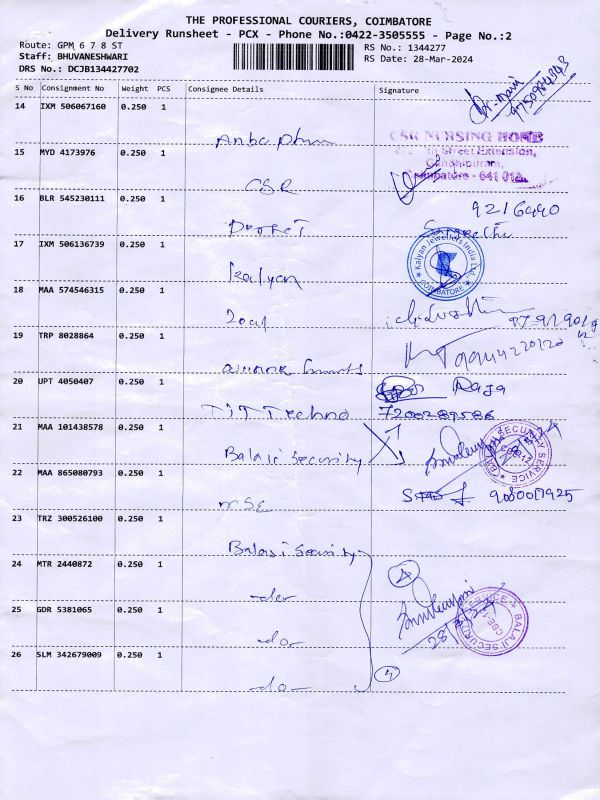 THE PROFESSIONAL COURIERS, COIMBATORE
Delivery Runsheet - PCX - Phone No.:0422-3505555 - Page No.:2
Route: GPM 6 7 8 ST
RS No.: 1344277
Staff: BHUVANESHWARI
RS Date: 28-Mar-2024
DRS No.: DCJB134427702
S No Consignment No Weight PCS Consignee Details Signature
14 IXM 506067160 0.250 1
CSR NURSING HOME
Street Extension,
15 MYD 4173976 0.250 1
Coimbatore - 641 012.
CSR
16 BLR 545230111 0.250 1
9216440
Sangeetha
17 IXM 506136739 0.250 1
Kalyan Jewellers India Ltd.
COIMBATORE
Kalyan
18 MAA 574546315 0.250 1
19 TRP 8028864 0.250 1
9944220120
20 UPT 4050407 0.250 1
Raja
TIT Techno 7200289586
21 MAA 101438578 0.250 1
BALAJI SECURITY SERVICE
CBE-12
Balaji Security
22 MAA 865080793 0.250 1
MSE
23 TRZ 300526100 0.250 1
Balaji Security
24 MTR 2440872 0.250 1
4
-do-
25 GDR 5381065 0.250 1
28/3/24
BALAJI SECURITY SERVICE
-do-
26 SLM 342679009 0.250 1
-do-